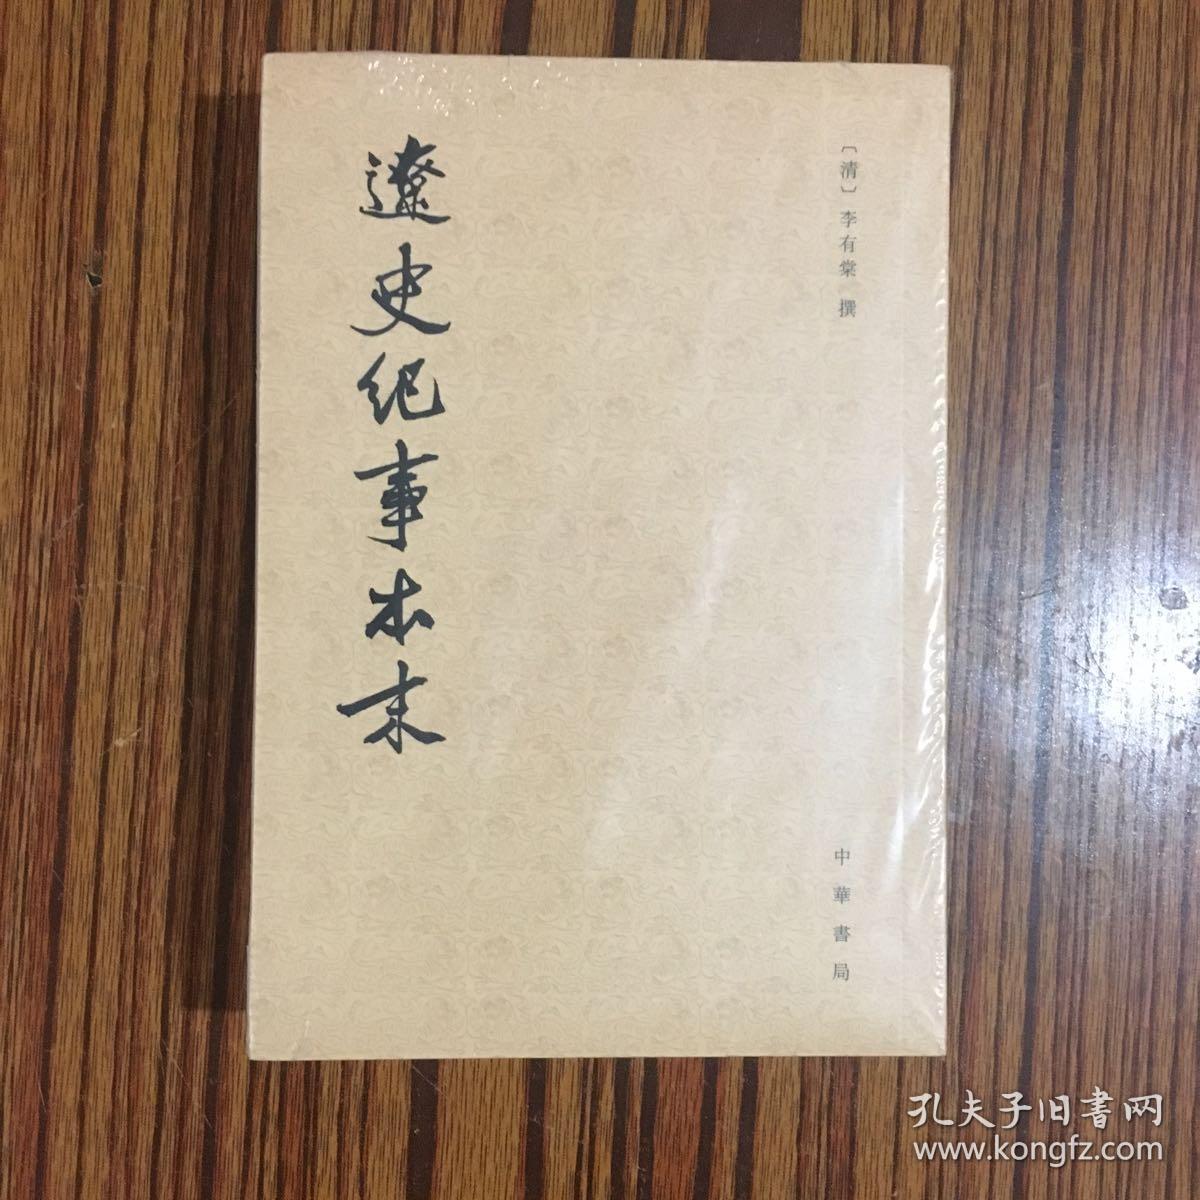 遼史紀事本末
〔清〕李有棠 撰
中華書局
孔夫子旧書网
www.kongfz.com